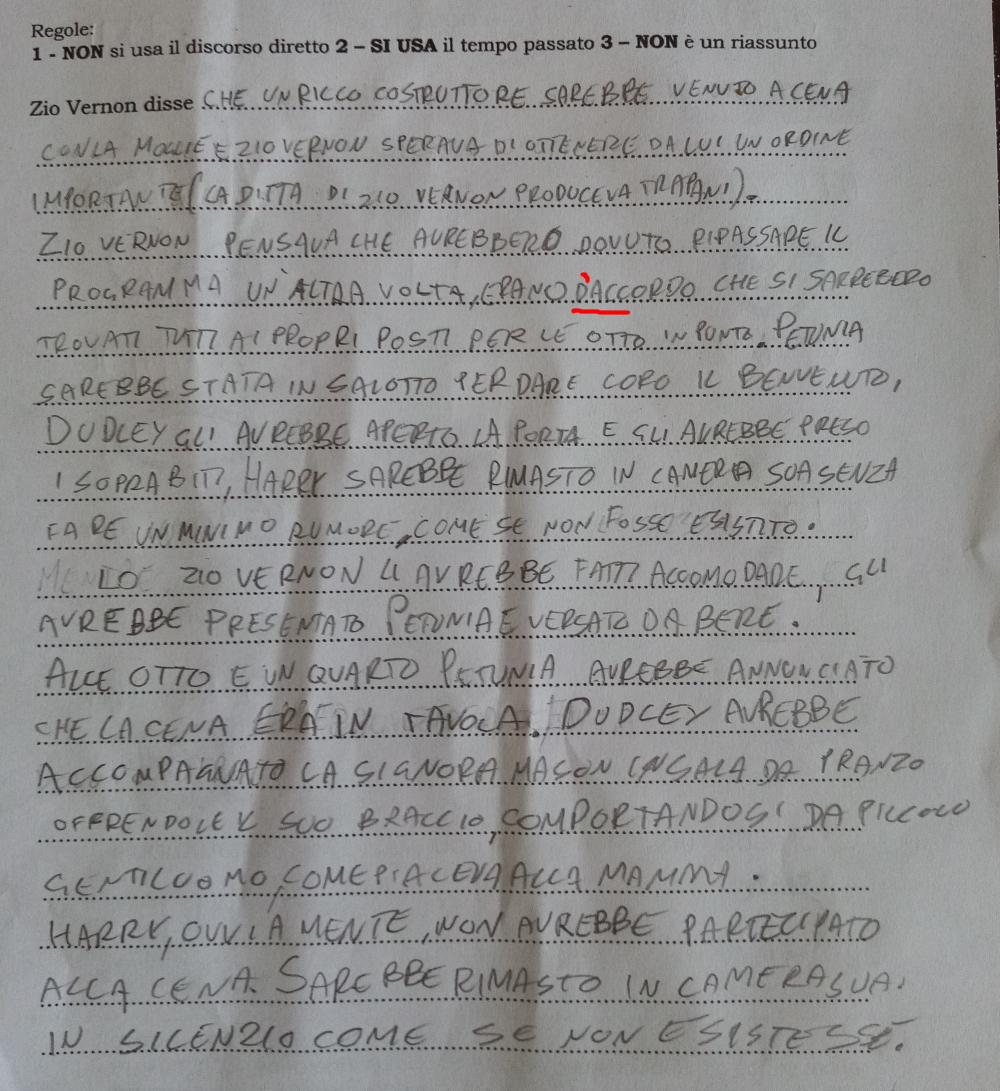 Regole:
1 - NON si usa il discorso diretto 2 – SI USA il tempo passato 3 – NON è un riassunto
Zio Vernon disse CHE UN RICCO COSTRUTTORE SAREBBE VENUTO A CENA
CON LA MOGLIE E ZIO VERNON SPERAVA DI OTTENERE DA LUI UN ORDINE
IMPORTANTE (LA DITTA DI ZIO VERNON PRODUCEVA TRAPANI).
ZIO VERNON PENSAVA CHE AVREBBERO DOVUTO RIPASSARE IL
PROGRAMMA UN'ALTRA VOLTA, ERANO D'ACCORDO CHE SI SARREBERO
TROVATI TUTTI AI PROPRI POSTI PER LE OTTO IN PUNTO. PETUNIA
SAREBBE STATA IN SALOTTO PER DARE LORO IL BENVENUTO,
DUDLEY GLI AVREBBE APERTO LA PORTA E GLI AVREBBE PRESO
I SOPRABITI, HARRY SAREBBE RIMASTO IN CAMERA SUA SENZA
FARE UN MINIMO RUMORE, COME SE NON FOSSE ESISTITO.
LO ZIO VERNON LI AVREBBE FATTI ACCOMODARE, GLI
AVREBBE PRESENTATO PETUNIA E VERSATO DA BERE.
ALLE OTTO E UN QUARTO PETUNIA AVREBBE ANNUNCIATO
CHE LA CENA ERA IN TAVOLA. DUDLEY AVREBBE
ACCOMPAGNATO LA SIGNORA MASON IN SALA DA PRANZO
OFFRENDOLE IL SUO BRACCIO, COMPORTANDOSI DA PICCOLO
GENTILUOMO, COME PIACEVA ALLA MAMMA.
HARRY, OVVIAMENTE, NON AVREBBE PARTECIPATO
ALLA CENA. SAREBBE RIMASTO IN CAMERA SUA.
IN SILENZIO COME SE NON ESISTESSE.